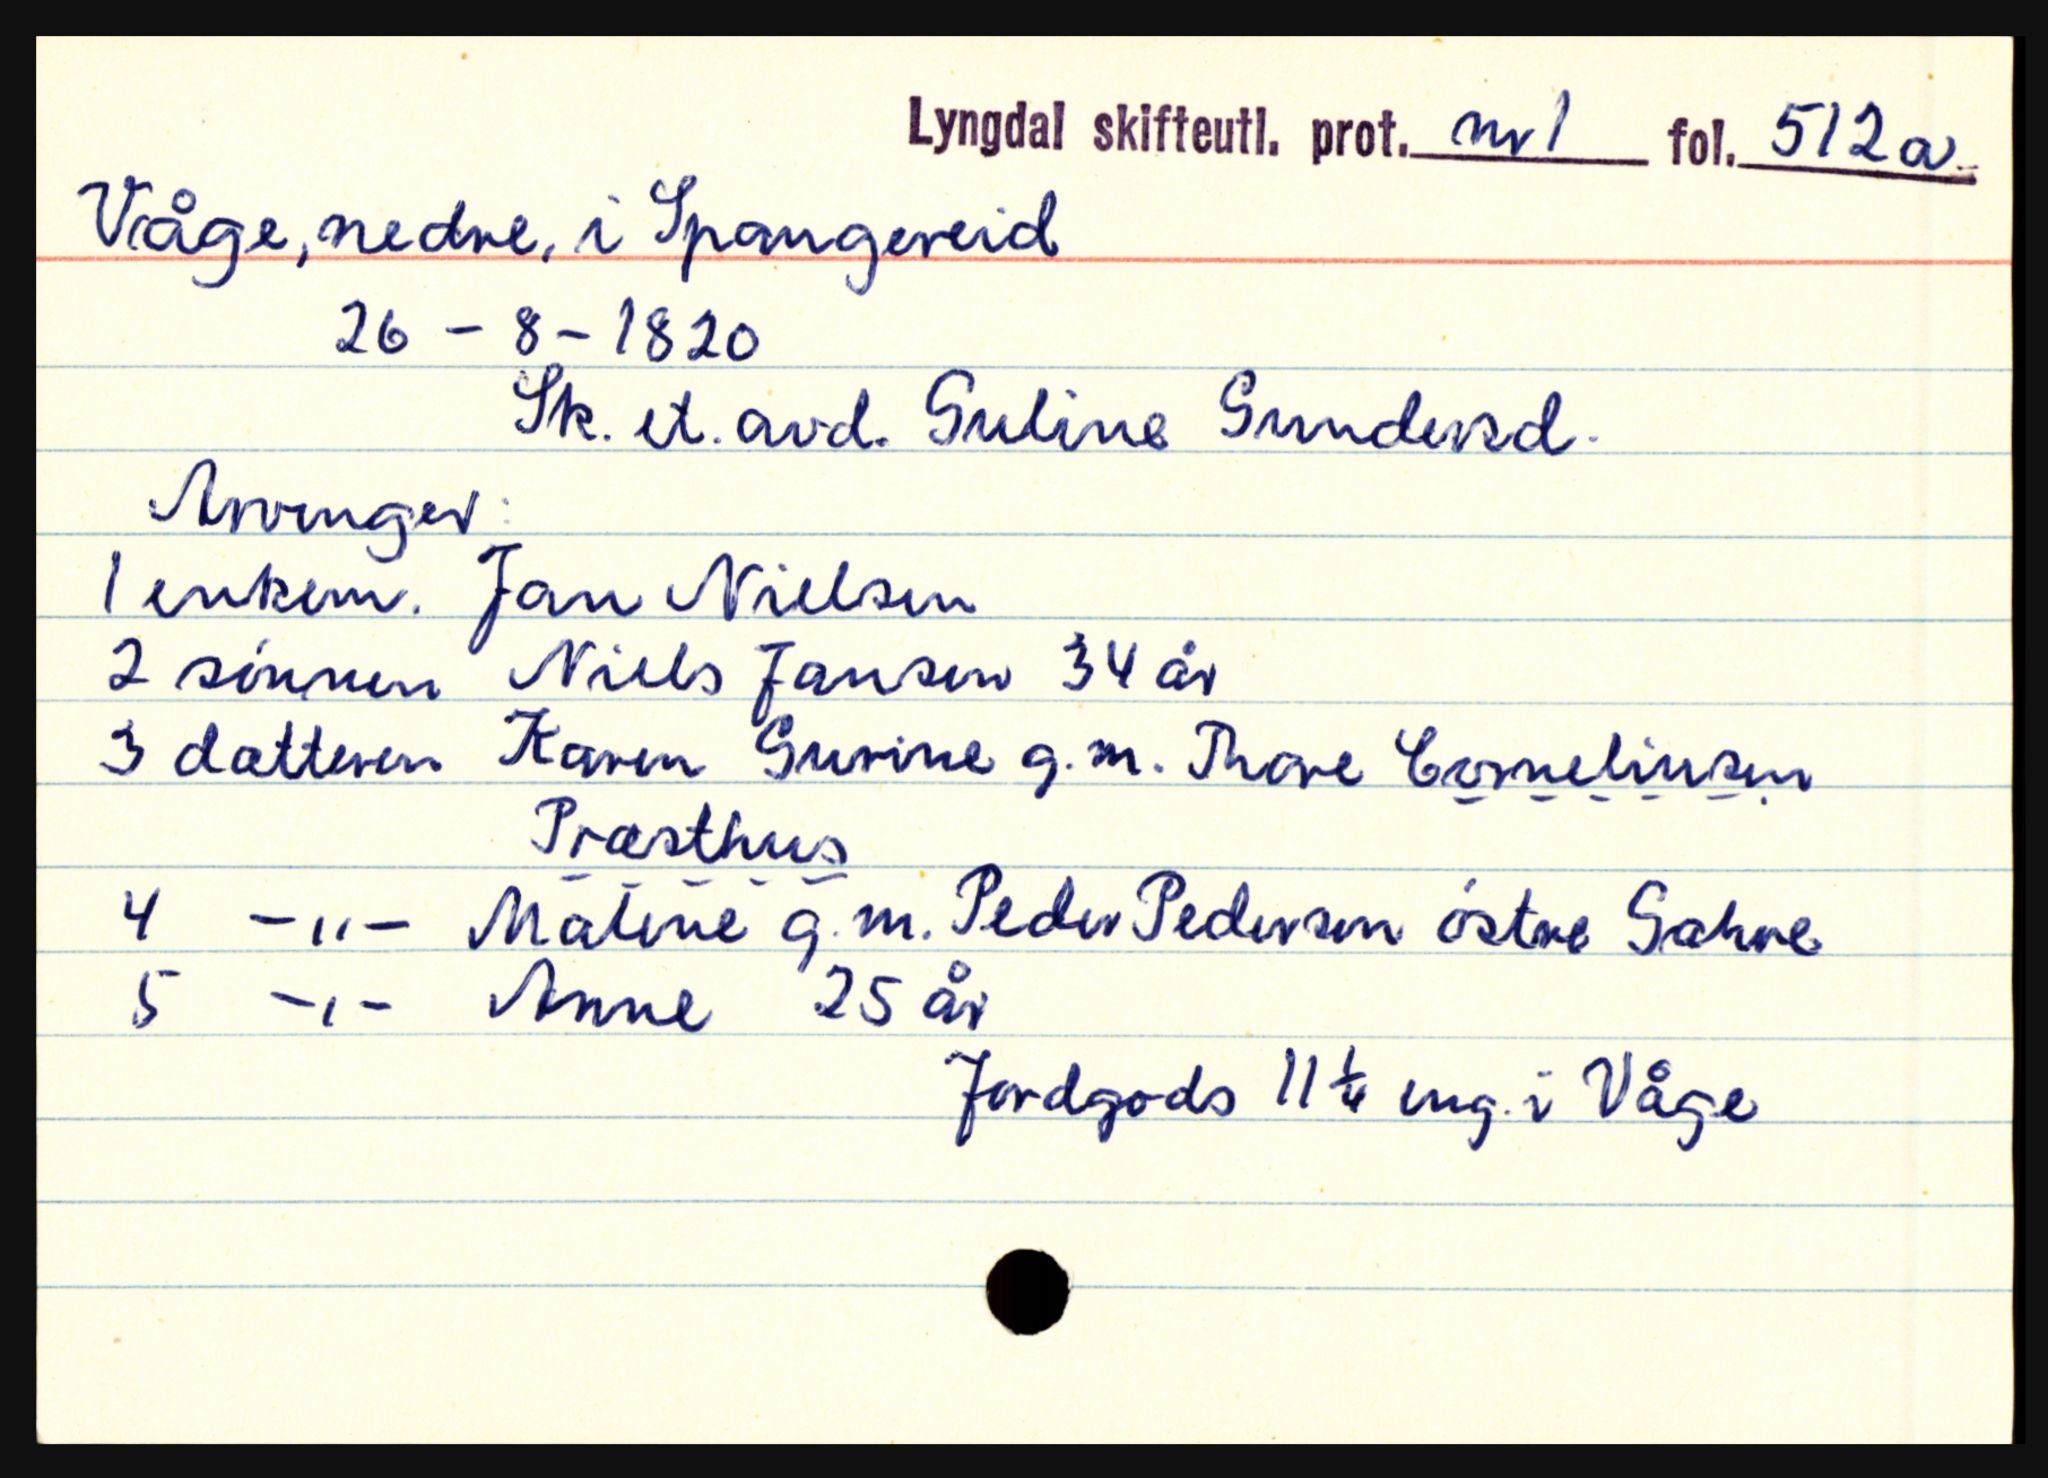 Lyngdal skifteutl. prot. nr 1 fol. 512a
Våge, nedre, i Spangereid
26 - 8 - 1820
Sk. et. avd. Guline Gundersd.
Arvinger:
1 enkem. Jan Nielsen
2 sönnen Niels Jansen 34 år
3 datteren Karen Gurine g.m. Thore Corneliusen
Præsthus
4 -"- Maline g.m. Peder Pedersen östre Gahre
5 -"- Anne 25 år
Jordgods 11 1/4 eng. i Våge